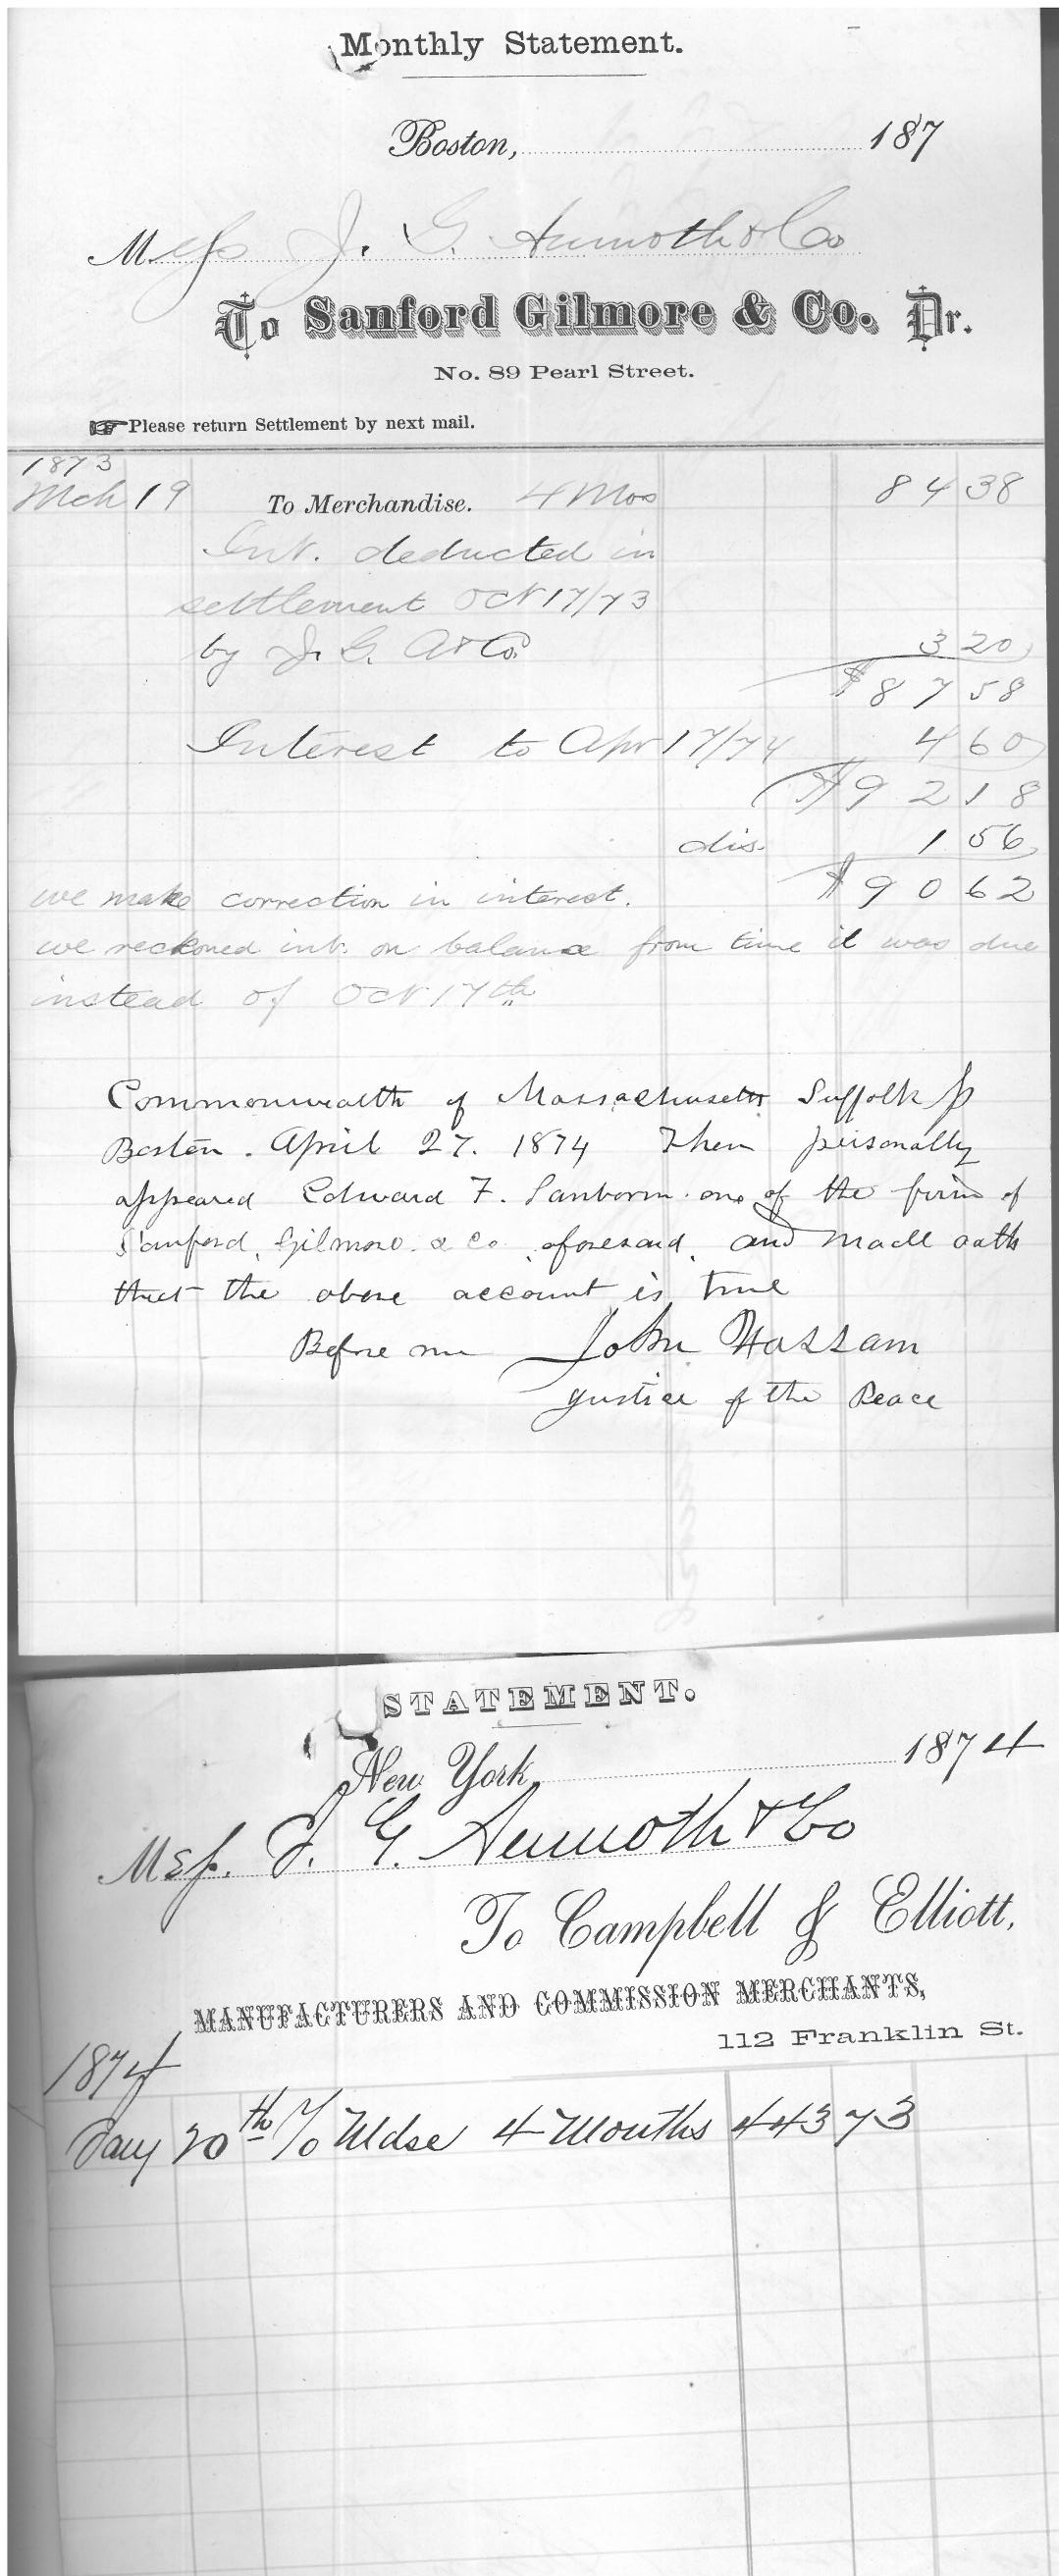 Monthly Statement.
Boston, 187
Mess J. G. & Co
To Sanford Gilmore & Co. Dr.
No. 89 Pearl Street.
Please return Settlement by next mail.
1873
Mch 19 To Merchandise. 4 Mos 84 38
Int. deducted in
settlement Oct 17/73
by J. G. A & Co. 3 20
$87 58
Interest to Apr 17/74 4 60
$92 18
dis. 1 56
$90 62
we make correction in interest.
we reckoned int. on balance from time it was due
instead of Oct 17th
Commonwealth of Massachusetts Suffolk ss
Boston. April 27. 1874 Then personally
appeared Edward F. Sanborn one of the firm of
Sanford, Gilmore & Co aforesaid, and made oath
that the above account is true
Before me John Hassam
Justice of the Peace
STATEMENT.
New York 1874
Mess. J. G. & Co
To Campbell & Elliott,
MANUFACTURERS AND COMMISSION MERCHANTS,
112 Franklin St.
1874
Jany 20th To Mdse 4 Months 443 73